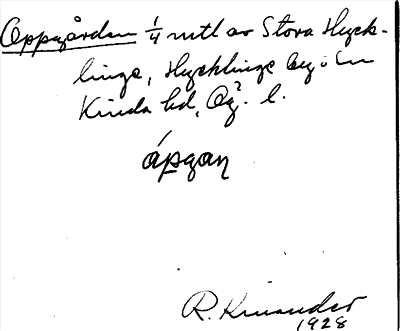 Oppgården 1/4 mtl av Stora Hyck-
linge, Hycklinge by o. sn
Kinda hd, Ög. l.
ápgaɳ
R. Kinander
1928